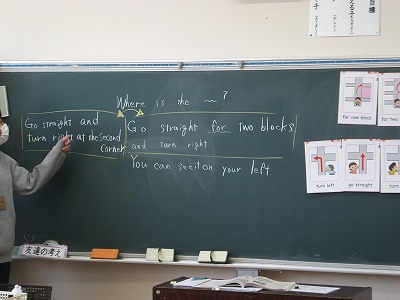 Where is the ～?
Go straight and
turn right at the second
corner
Go straight for two blocks
and turn right
You can see it on your left
for one block
for two
turn left
go straight
turn
友達の考え